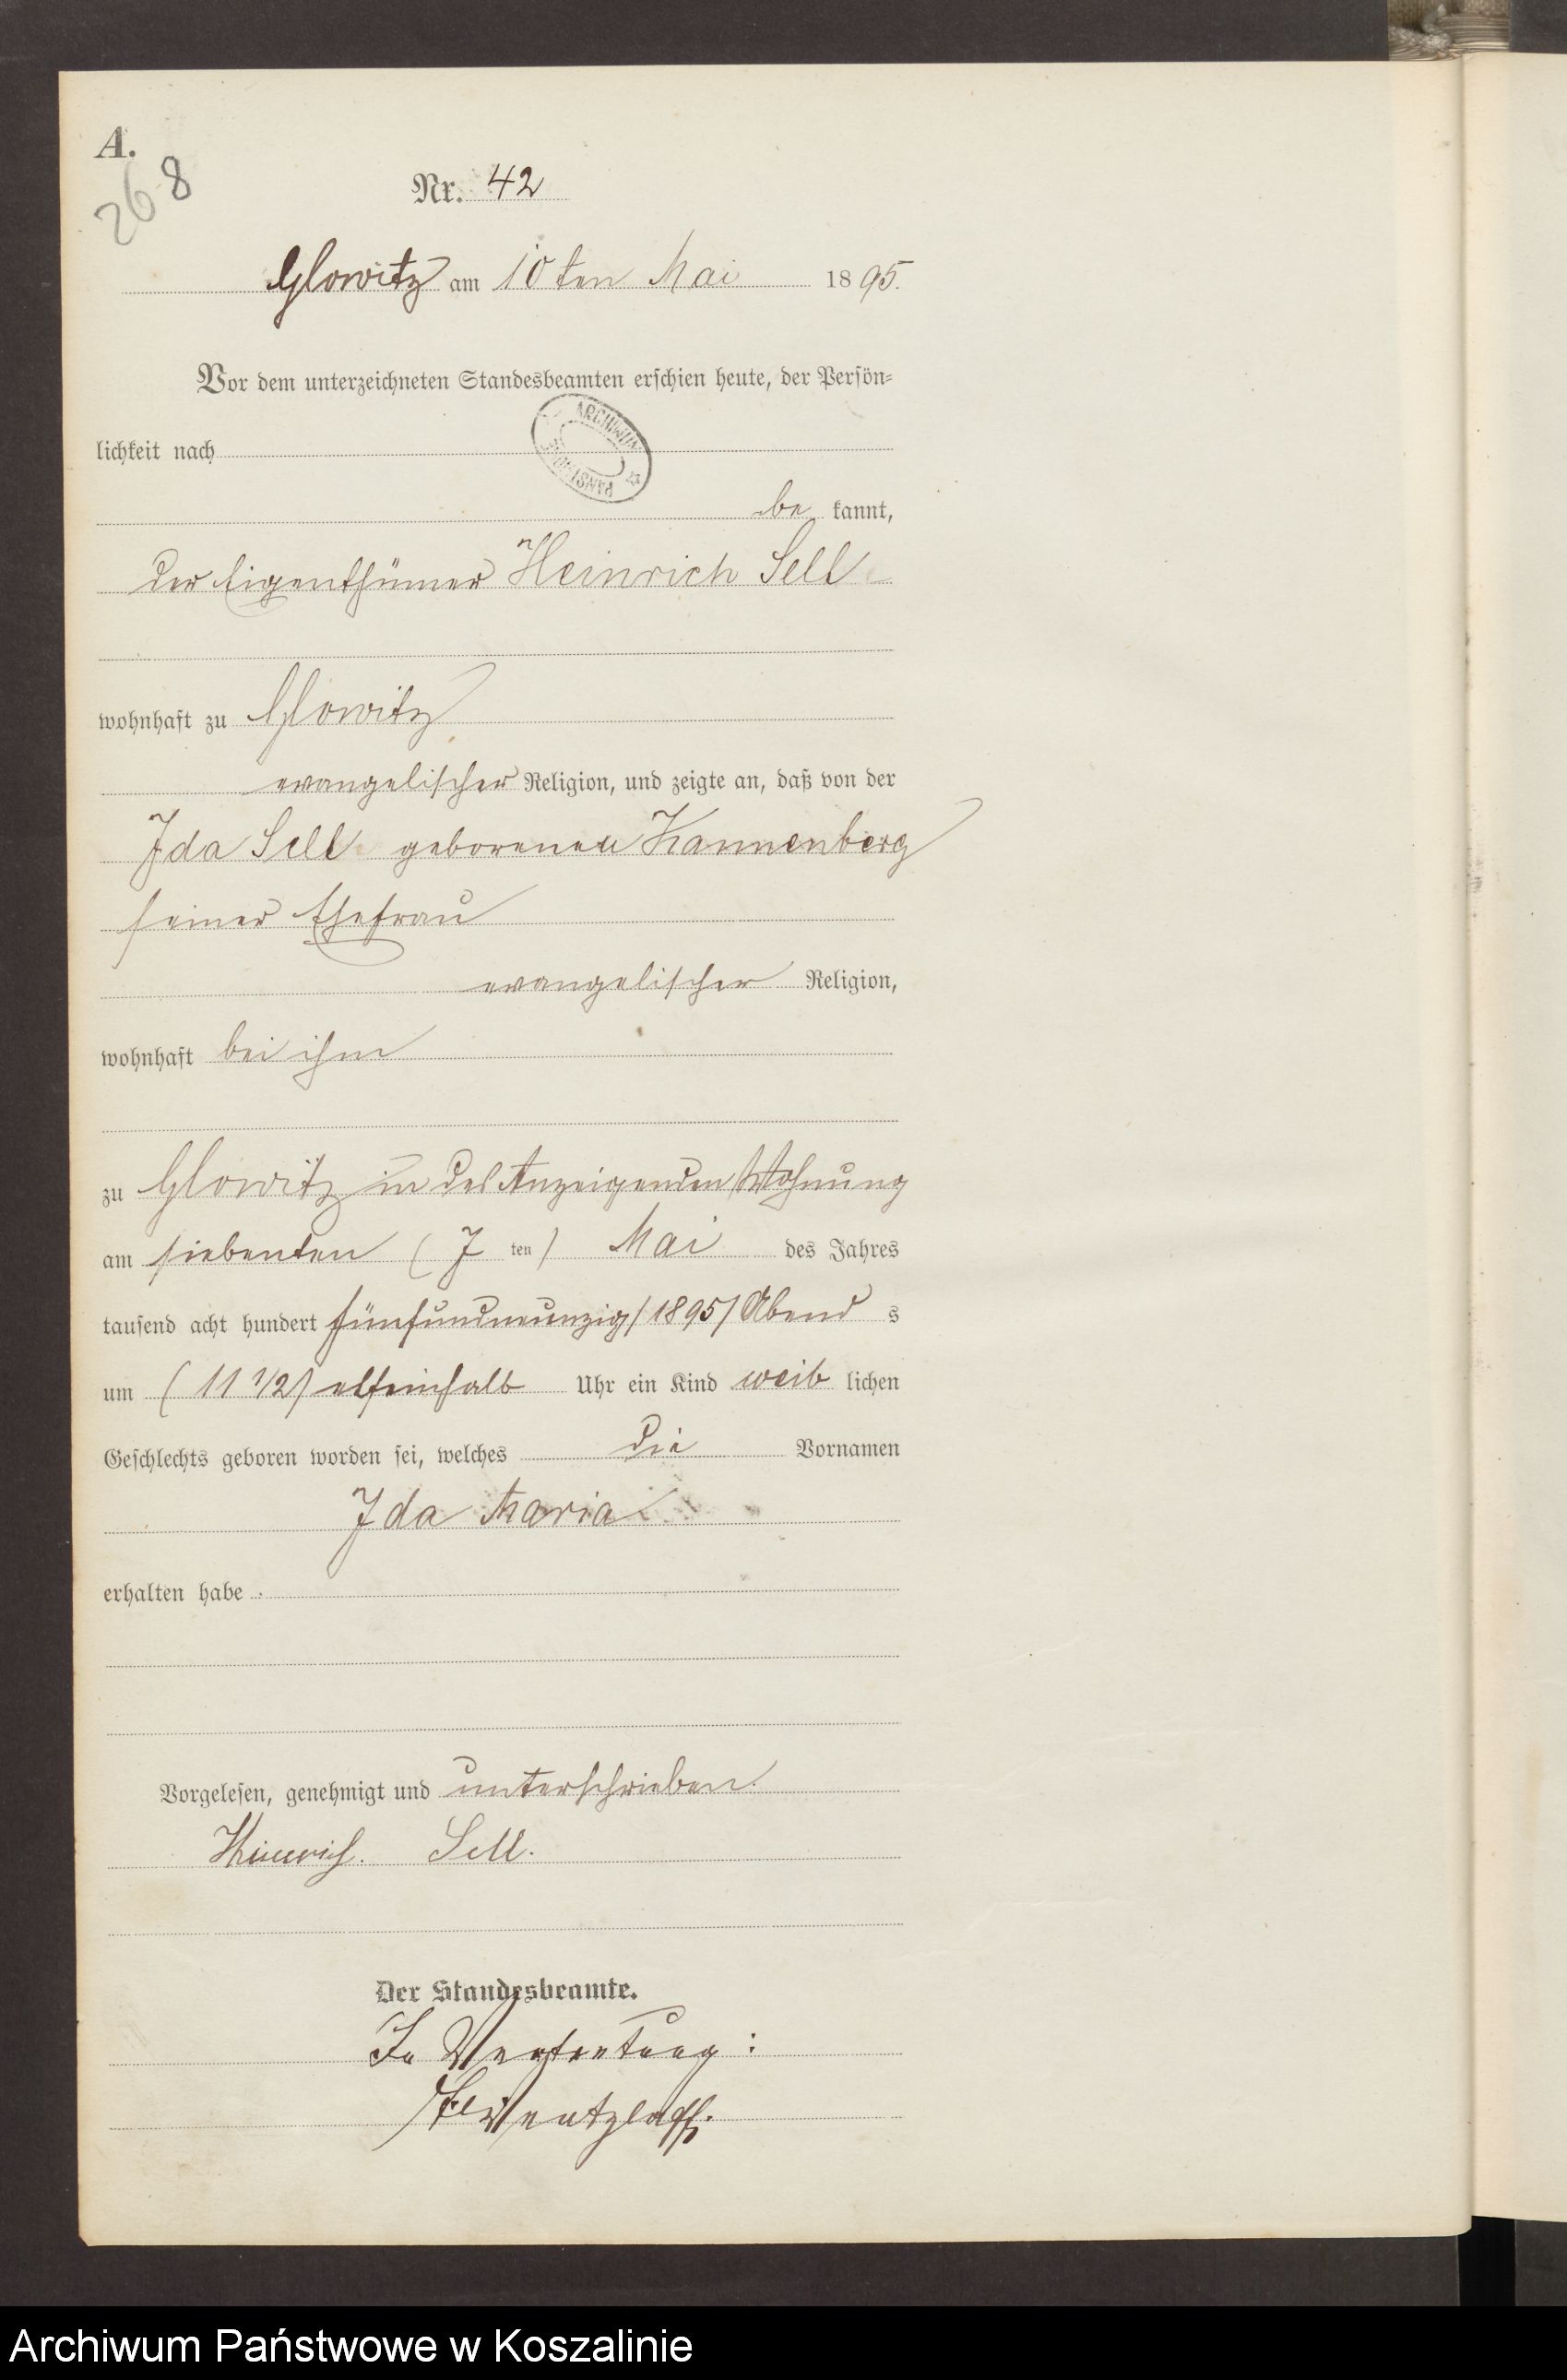 A.
268
Nr. 42
Glowitz am 10ten Mai 1895.
Vor dem unterzeichneten Standesbeamten erschien heute, der Persön-
lichkeit nach
ARCHIWUM PAŃSTWOWE
be kannt,
der Eigenthümer Heinrich Sell
wohnhaft zu Glowitz
evangelischer Religion, und zeigte an, daß von der
Ida Sell geborenen Kannenberg
seiner Ehefrau
evangelischer Religion,
wohnhaft bei ihm
zu Glowitz in des Anzeigenden Wohnung
am siebenten (7 ten) Mai des Jahres
tausend acht hundert fünfundneunzig /1895/ Abend s
um (11 1/2) elfeinhalb Uhr ein Kind weib lichen
Geschlechts geboren worden sei, welches die Vornamen
Ida Maria
erhalten habe
Vorgelesen, genehmigt und unterschrieben.
Heinrich. Sell.
Der Standesbeamte.
In Vertretung:
Archiwum Państwowe w Koszalinie